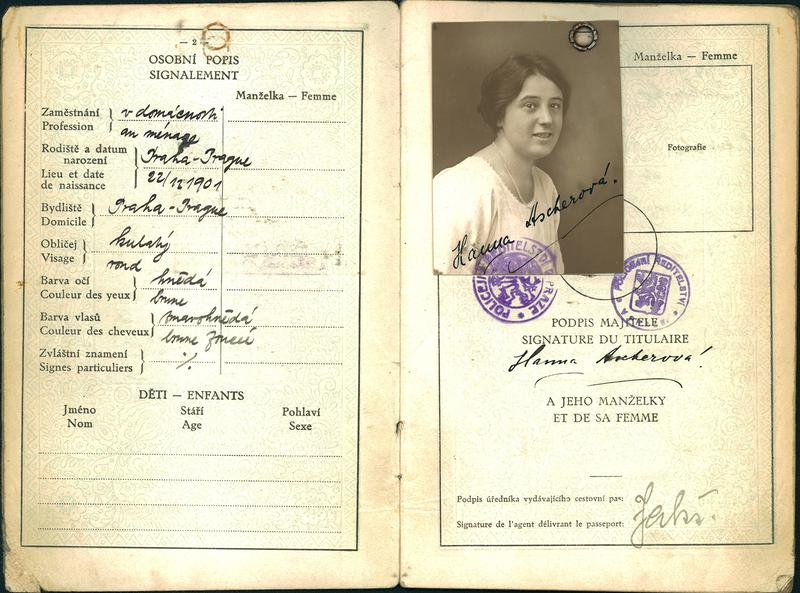 — 2 —
OSOBNÍ POPIS
SIGNALEMENT
Manželka — Femme
Zaměstnání
Profession
v domácnosti
au ménage
Rodiště a datum
narození
Lieu et date
de naissance
Praha-Prague
22/12 1901
Bydliště
Domicile
Praha-Prague
Obličej
Visage
kulatý
rond
Barva očí
Couleur des yeux
hnědá
brune
Barva vlasů
Couleur des cheveux
tmavohnědá
brune foncé
Zvláštní znamení
Signes particuliers
%
DĚTI — ENFANTS
Jméno Stáří Pohlaví
Nom Age Sexe
Manželka — Femme
Fotografie
Hanna Ascherová.
POLICEJNÍ ŘEDITELSTVÍ V PRAZE
POLICEJNÍ ŘEDITELSTVÍ
PODPIS MAJITELE
SIGNATURE DU TITULAIRE
Hanna Ascherová!
A JEHO MANŽELKY
ET DE SA FEMME
Podpis úředníka vydávajícího cestovní pas:
Signature de l'agent délivrant le passeport: